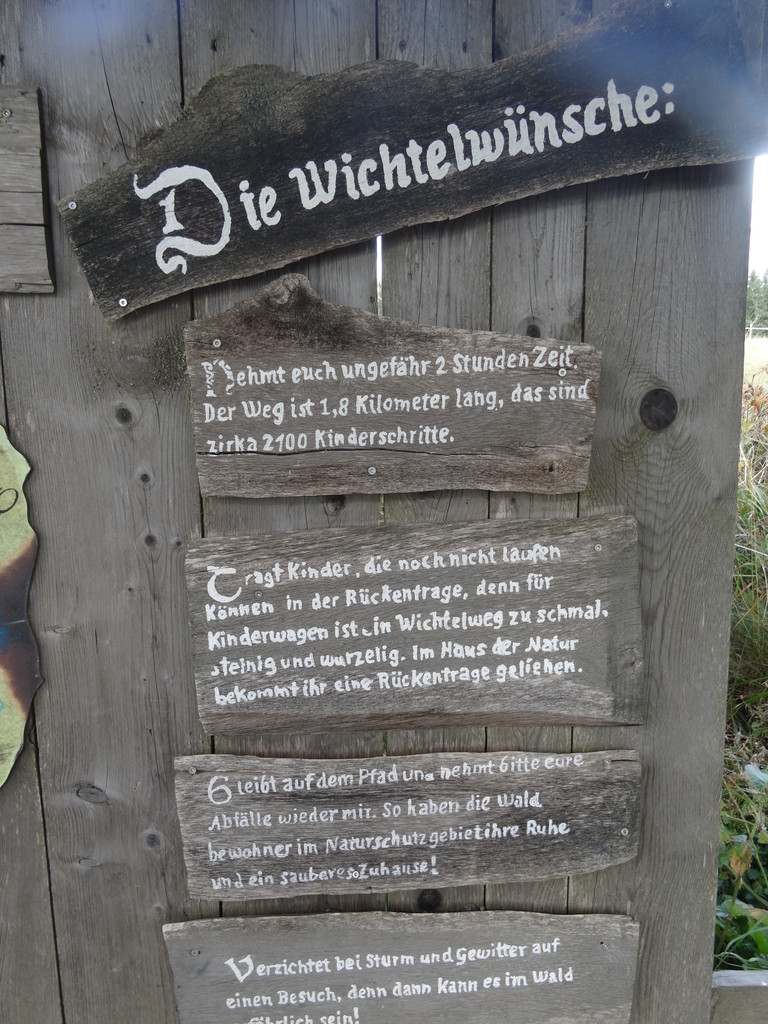 Die Wichtelwünsche:
Nehmt euch ungefähr 2 Stunden Zeit.
Der Weg ist 1,8 Kilometer lang, das sind
zirka 2100 Kinderschritte.
Tragt Kinder, die noch nicht laufen
können in der Rückentrage, denn für
Kinderwagen ist ein Wichtelweg zu schmal,
steinig und wurzelig. Im Haus der Natur
bekommt ihr eine Rückentrage geliehen.
Bleibt auf dem Pfad und nehmt bitte eure
Abfälle wieder mit. So haben die Wald
bewohner im Naturschutzgebiet ihre Ruhe
und ein sauberes Zuhause!
Verzichtet bei Sturm und Gewitter auf
einen Besuch, denn dann kann es im Wald
sein!